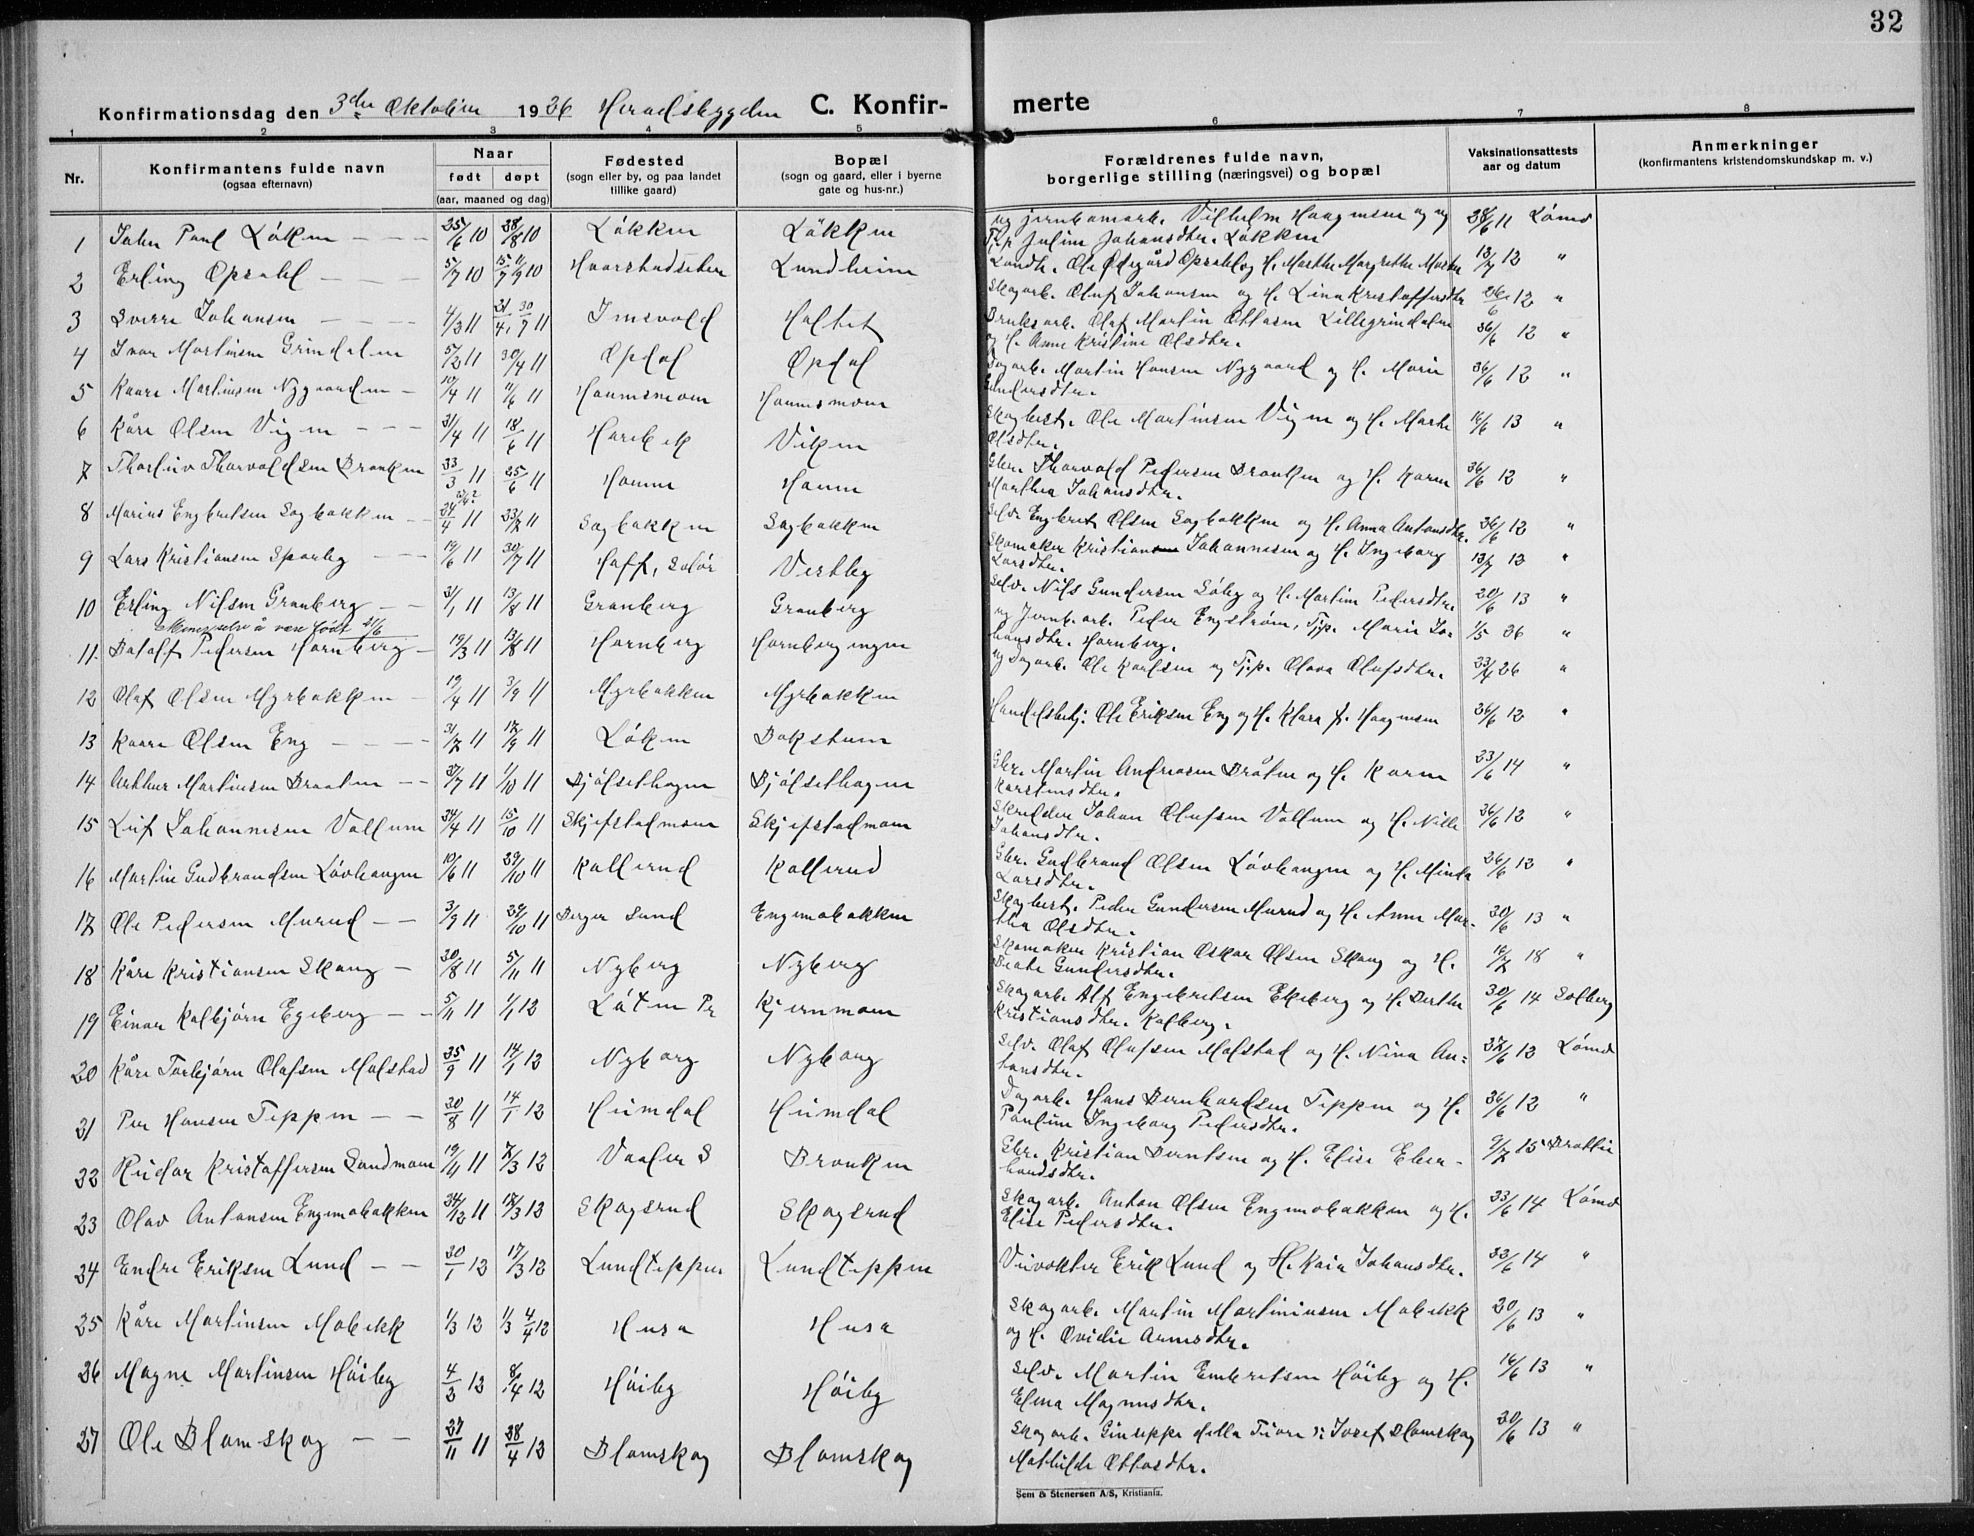 32
Konfirmationsdag den 3die Oktober 1926 Heradsbygden C. Konfir-merte
1 2 3 4 5 6 7 8
Nr.
Konfirmantens fulde navn
(ogsaa efternavn)
Naar
født døpt
(aar, maaned og dag)
Fødested
(sogn eller by, og paa landet
tillike gaard)
Bopæl
(sogn og gaard, eller i byerne
gate og hus-nr.)
Forældrenes fulde navn,
borgerlige stilling (næringsvei) og bopæl
Vaksinationsattests
aar og datum
Anmerkninger
(konfirmantens kristendomskundskap m. v.)
1 John Paul Løken 25/6 10 28/8 10 Løkken Løkken ug jernbanearb. Vilhelm Haagensen og ug 28/6 11 Lømo
Tj.p. Juline Johansdtr. Løkken
2 Erling Opsahl 5/7 10 Haarstadseter Lundheim Landh. Ole Ødegård Opsahl og H. Marthe Margrethe 13/7 12 "
3 Sverre Johansen 4/3 11 Imsvold Holtet Skogarb. Oluf Johansen og H. Lina Kristoffersdtr 26/6 12 "
4 Ivar Martinsen Grindalen 5/2 11 30/4 11 Opdal Opdal Bruksarb. Olaf Martin Ottosen Lillegrindalen 26/6 12 "
og H. Anne Kristine Olsdtr.
5 Kaare Martinsen Nygaarden 10/4 11 11/6 11 Haunsmoen Haunsmoen Dagarb. Martin Hansen Nygaard og H. Marie 26/6 12 "
Gundersdtr.
6 Kåre Olsen Vigen 21/4 11 18/6 11 Harebek Viken Skogbest. Ole Martinsen Vigen og H. Marte 16/6 13 "
Olsdtr.
7 Thorleiv Thorvaldsen Bronken 23/3 11 25/6 11 Haune Haune Gbr. Thorvald Pedersen Bronken og H. Karen 26/6 12 "
Marthea Johansdtr.
8 Marius Engbretsen Sagbakken 24/4 11 23/7 11 Sagbakken Sagbakken Selv. Engbret Olsen Sagbakken og H. Anna Antonsdtr. 26/6 12 "
9 Lars Kristiansen Sparby 19/6 11 30/7 11 Hoff, Solør Vestby Skomaker Kristian Johannesen og H. Ingeborg 13/7 12 "
Larsdtr.
10 Erling Nilsen Granberg 21/1 11 13/8 11 Granberg Granberg Selv. Nils Gundersen Søby og H. Martine Pedersdtr. 20/6 13 "
Mener selv å være født 21/6
11 Detloff Pedersen Hornberg 19/3 11 13/8 11 Hornberg Hornbergengen ug Jernb.arb. Peder Engstrøm, Tj.p. Marie Jo- 1/5 26 "
hansdtr. Hornberg.
12 Olaf Olsen Myrbakken 19/4 11 3/9 11 Myrbakken Myrbakken ug Dagarb. Ole Karlsen og Tj.p. Olava Olufsdtr. 23/4 26 "
13 Kaare Olsen Eng 31/7 11 17/9 11 Løken Bakstuen Handelsbetj. Ole Eriksen Eng og H. Klara f. Haagensen 26/6 12 "
14 Arthur Martinsen Braaten 27/7 11 1/10 11 Bjølsethagen Bjølsethagen Gbr. Martin Andreasen Bråten og H. Karen 23/6 14 "
Karstensdtr.
15 Leif Johannesen Vollum 24/4 11 15/10 11 Skjefstadmoen Skjefstadmoen Skredder Johan Olufsen Vollum og H. Nille 26/6 12 "
Johansdtr.
16 Martin Gudbrandsen Løvhaugen 10/6 11 29/10 11 Kallerud Kallerud Gbr. Gudbrand Olsen Løvhaugen og H. Minda 26/6 12 "
Larsdtr.
17 Ole Pedersen Murud 3/9 11 29/10 11 Berger Lund Engmobakken Skogbest. Peder Gundersen Murud og H. Anne Mar- 20/6 13 "
thea Olsdtr.
18 Kåre Kristiansen Skaug 20/8 11 5/11 11 Nyberg Nyberg Skomaker Kristian Oskar Olsen Skaug og H. 16/7 18 "
Beate Gundersdtr.
19 Einar Kolbjørn Egeberg 5/11 11 1/1 12 Løten Pr Kjernmoen Skogarb. Alf Engebretsen Ekeberg og H. Berthe 30/6 14 Solberg
Kristiansdtr. Kolberg.
20 Kåre Torbjørn Olafsen Malstad 25/9 11 14/1 12 Nyborg Nyborg Selv. Olaf Olufsen Malstad og H. Nina An- 27/6 12 Lømo
tonsdtr.
21 Per Hansen Teppen 20/8 11 14/1 12 Heimdal Heimdal Dagarb. Hans Bernhardsen Teppen og H. 26/6 12 "
Pauline Ingeborg Pedersdtr.
22 Reidar Kristoffersen Sandmoen 19/11 11 7/3 12 Vaaler S Bronken Gbr. Kristian Berntsen og H. Elise Eber- 9/7 15
hardsdtr.
23 Olav Antonsen Engmobakken 24/12 11 17/3 12 Skogsrud Skogsrud Skogarb. Anton Olsen Engmobakken og H. 23/6 14 Lømo
Elise Pedersdtr.
24 Endre Eriksen Lund 20/1 12 17/3 12 Lundteppen Lundteppen Veivokter Erik Lund og H. Kaia Johansdtr. 23/6 14 "
25 Kåre Martinsen Mobekk 1/3 12 1/3 4/4 12 Husa Husa Skogarb. Martin Martiniusen Mobekk 20/6 13 "
og H. Ovidie Arnesdtr.
26 Magne Martinsen Høiby 4/3 12 8/4 12 Høiby Høiby Selv. Martin Embretsen Høiby og H. 16/6 13 "
Elena Magnusdtr.
27 Ole Blomskog 27/11 11 28/4 12 Blomskog Blomskog Skogarb. Giuseppe della Fiore Josef Blomskog 20/6 13 "
Mathilde Ottosdtr.
Sem & Stenersen A/S, Kristiania.